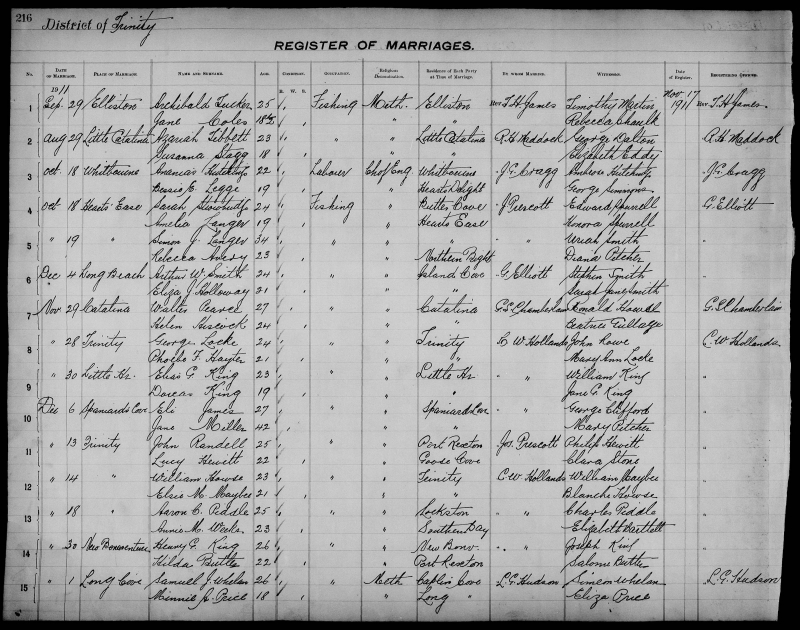 216
District of Trinity
REGISTER OF MARRIAGES.
No. DATE OF MARRIAGE. PLACE OF MARRIAGE NAME AND SURNAME. AGE. CONDITION. OCCUPATION. Religious Denomination. Residence of Each Party at Time of Marriage. BY WHOM MARRIED. WITNESSES. DATE of Register. REGISTERING OFFICER.
B. W. S.
1911 Nov 17
1 Sep. 29 Elliston Archibald Tucker 25 Fishing Meth. Elliston Rev T. H. James Timothy Martin 1911 Rev T. H. James
Jane Coles 18 " " Rebecca Chaulk
2 Aug 29 Little Catalina Azariah Tibbett 23 " " Little Catalina R. H. Maddock George Dalton R. H. Maddock
Susanna Stagg 18 " " Elizabeth Eddy
3 Oct 18 Whitbourne Ananias 22 Labourer Ch of Eng. Whitbourne J. G. Cragg Ambrose J. G. Cragg
Bessie E. Legge 19 " Hearts Delight George
4 Oct 18 Hearts Ease Sarah 24 Fishing " Butter Cove J. Prescott Edward Spurnell G. Elliott
Amelia Langer 19 " Hearts Ease Honora Spurnell
5 " 19 " Simon J. Langer 34 " " " " " Uriah Smith "
Rebecca Avery 23 " Northern Bight Diana Pitcher
6 Dec 4 Long Beach Arthur W. Smith 24 " " Island Cove G. Elliott Stephen Smith "
Eliza J. Holloway 21 " " Sarah Jane Smith
7 Nov 29 Catalina Walter Pearce 27 " " Catalina G. S. Chamberlain Donald Howell G. S. Chamberlain
Helen Hiscock 24 " " Beatrice Tullage
8 " 28 Trinity George Locke 24 " " Trinity C. W. Hollands John Lowe C. W. Hollands
Phoebe F. Hayter 21 " " Mary Ann Locke
9 " 30 Little Hr. Elias G. King 23 " " Little Hr. " " William King "
Dorcas King 19 " " Jane G. King
10 Dec 6 Spaniards Cove Eli James 27 " " Spaniards Cov. " " George Clifford "
Jane Miller 42 " " Mary Pitcher
11 " 13 Trinity John Randell 25 " " Port Rexton Jos. Prescott Philip Hewitt "
Lucy Hewitt 22 " Goose Cove Clara Stone
12 " 14 " William Howse 23 " " Trinity C. W. Hollands William Maybee "
Elsie M. Maybee 21 " " Blanche Howse
13 " 18 " Aaron C. Piddle 25 " " Lockston " " Charles Piddle "
Annie M. Weeks 23 " Southern Bay Elizabeth Bartlett
14 " 30 New Bonaventure Henry G. King 26 " " New Bonv. " " Joseph King "
Hilda Butler 22 " Port Rexton Salome Butler
15 " 1 Long Cove Samuel J. Whelan 26 " Meth Caplin Cove L. G. Hudson Simeon Whelan L. G. Hudson
Minnie A. Price 18 " Long " Eliza Price